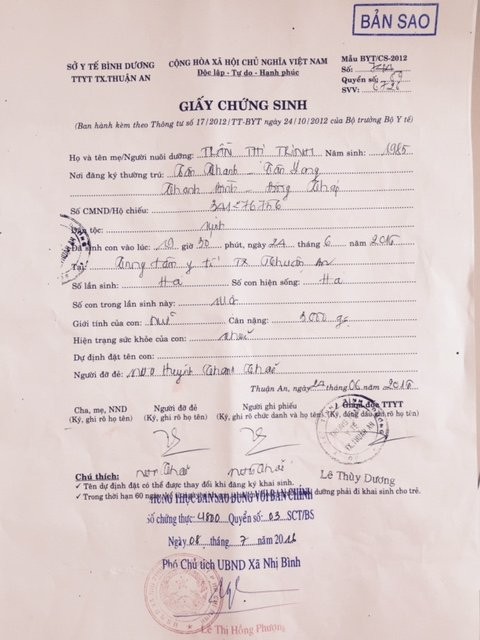 BẢN SAO
SỞ Y TẾ BÌNH DƯƠNG
TTYT TX.THUẬN AN
CỘNG HÒA XÃ HỘI CHỦ NGHĨA VIỆT NAM
Độc lập - Tự do - Hạnh phúc
Mẫu BYT/CS-2012
Số:
Quyển số: 69
SVV: 6726
GIẤY CHỨNG SINH
(Ban hành kèm theo Thông tư số 17/2012/TT-BYT ngày 24/10/2012 của Bộ trưởng Bộ Y tế)
Họ và tên mẹ/Người nuôi dưỡng: TRẦN THỊ TRINH Năm sinh: 1985
Nơi đăng ký thường trú: Tân Thạnh - Tân
Thanh Bình - Đồng Tháp
Số CMND/Hộ chiếu: 341276756
Dân tộc:
Đã sinh con vào lúc: 10 giờ 30 phút, ngày 24 tháng 6 năm 2016
Tại: Trung tâm y tế TX Thuận An
Số lần sinh: Số con hiện sống:
Số con trong lần sinh này:
Giới tính của con: nữ Cân nặng: 3000 g
Hiện trạng sức khỏe của con:
Dự định đặt tên con:
Người đỡ đẻ: Huỳnh Thanh
Thuận An, ngày tháng 06 năm 2016
Cha, mẹ, NND
(Ký, ghi rõ họ tên)
Người đỡ đẻ
(Ký, ghi rõ họ tên)
Người ghi phiếu
(Ký, ghi rõ chức danh và họ tên)
Giám đốc TTYT
(Ký, đóng dấu, ghi rõ họ tên)
Lê Thùy Dương
Chú thích:
✓ Tên dự định đặt có thể được thay đổi khi đăng ký khai sinh.
✓ Trong thời hạn 60 ngày dưỡng phải đi khai sinh cho trẻ.
CHỨNG THỰC BẢN SAO ĐÚNG VỚI BẢN CHÍNH
số chứng thực: 4800 Quyển số: 03 SCT/BS
Ngày 08 tháng 7 năm 2016
Phó Chủ tịch UBND Xã Nhị Bình
Lê Thị Hồng Phượng